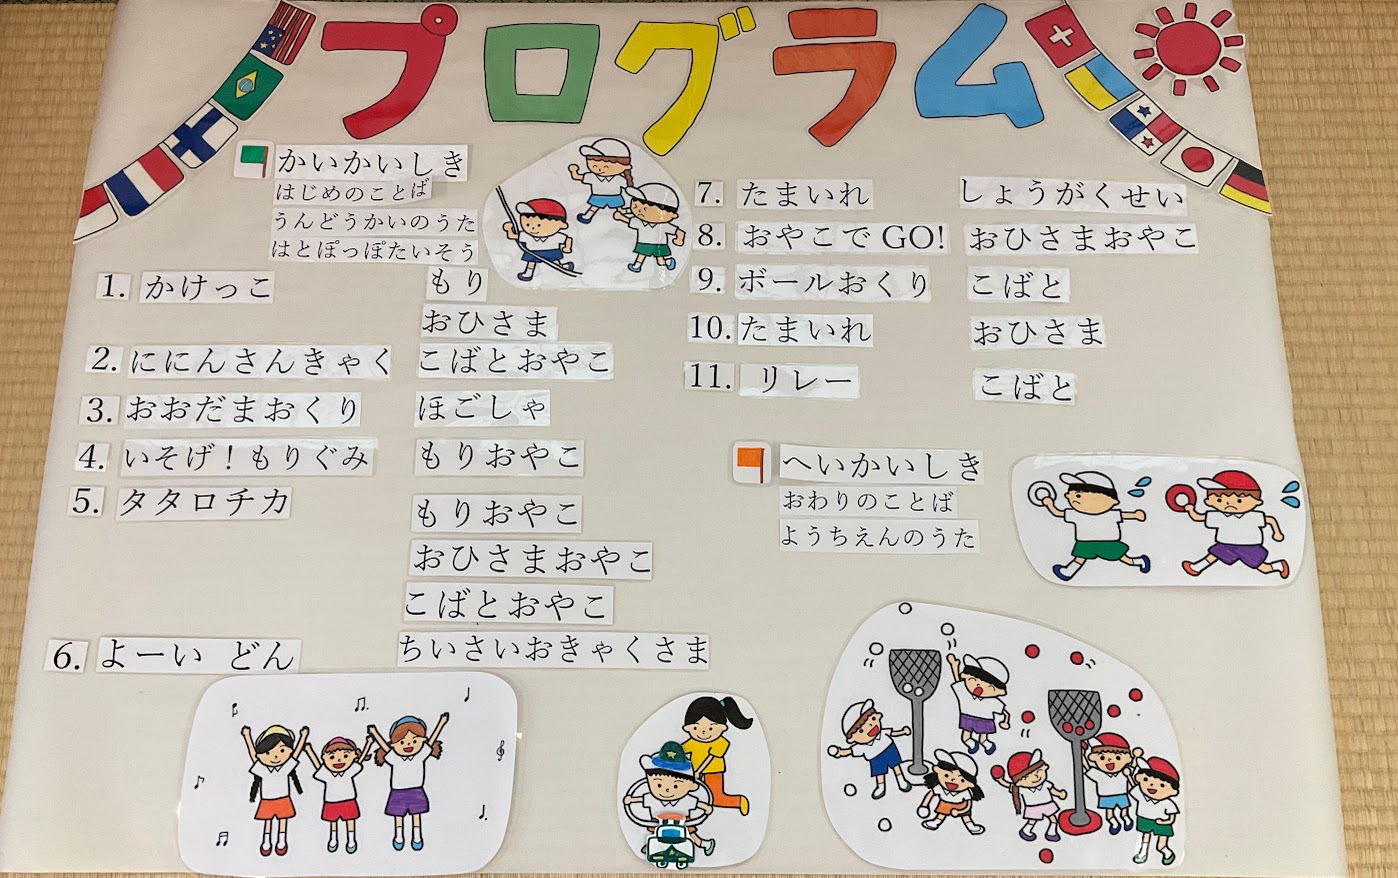 プログラム
かいかいしき
はじめのことば
うんどうかいのうた
はとぽっぽたいそう
1. かけっこ もり
おひさま
2. ににんさんきゃく こばとおやこ
3. おおだまおくり ほごしゃ
4. いそげ！もりぐみ もりおやこ
5. タタロチカ もりおやこ
おひさまおやこ
こばとおやこ
6. よーい どん ちいさいおきゃくさま
7. たまいれ しょうがくせい
8. おやこでGO! おひさまおやこ
9. ボールおくり こばと
10. たまいれ おひさま
11. リレー こばと
へいかいしき
おわりのことば
ようちえんのうた